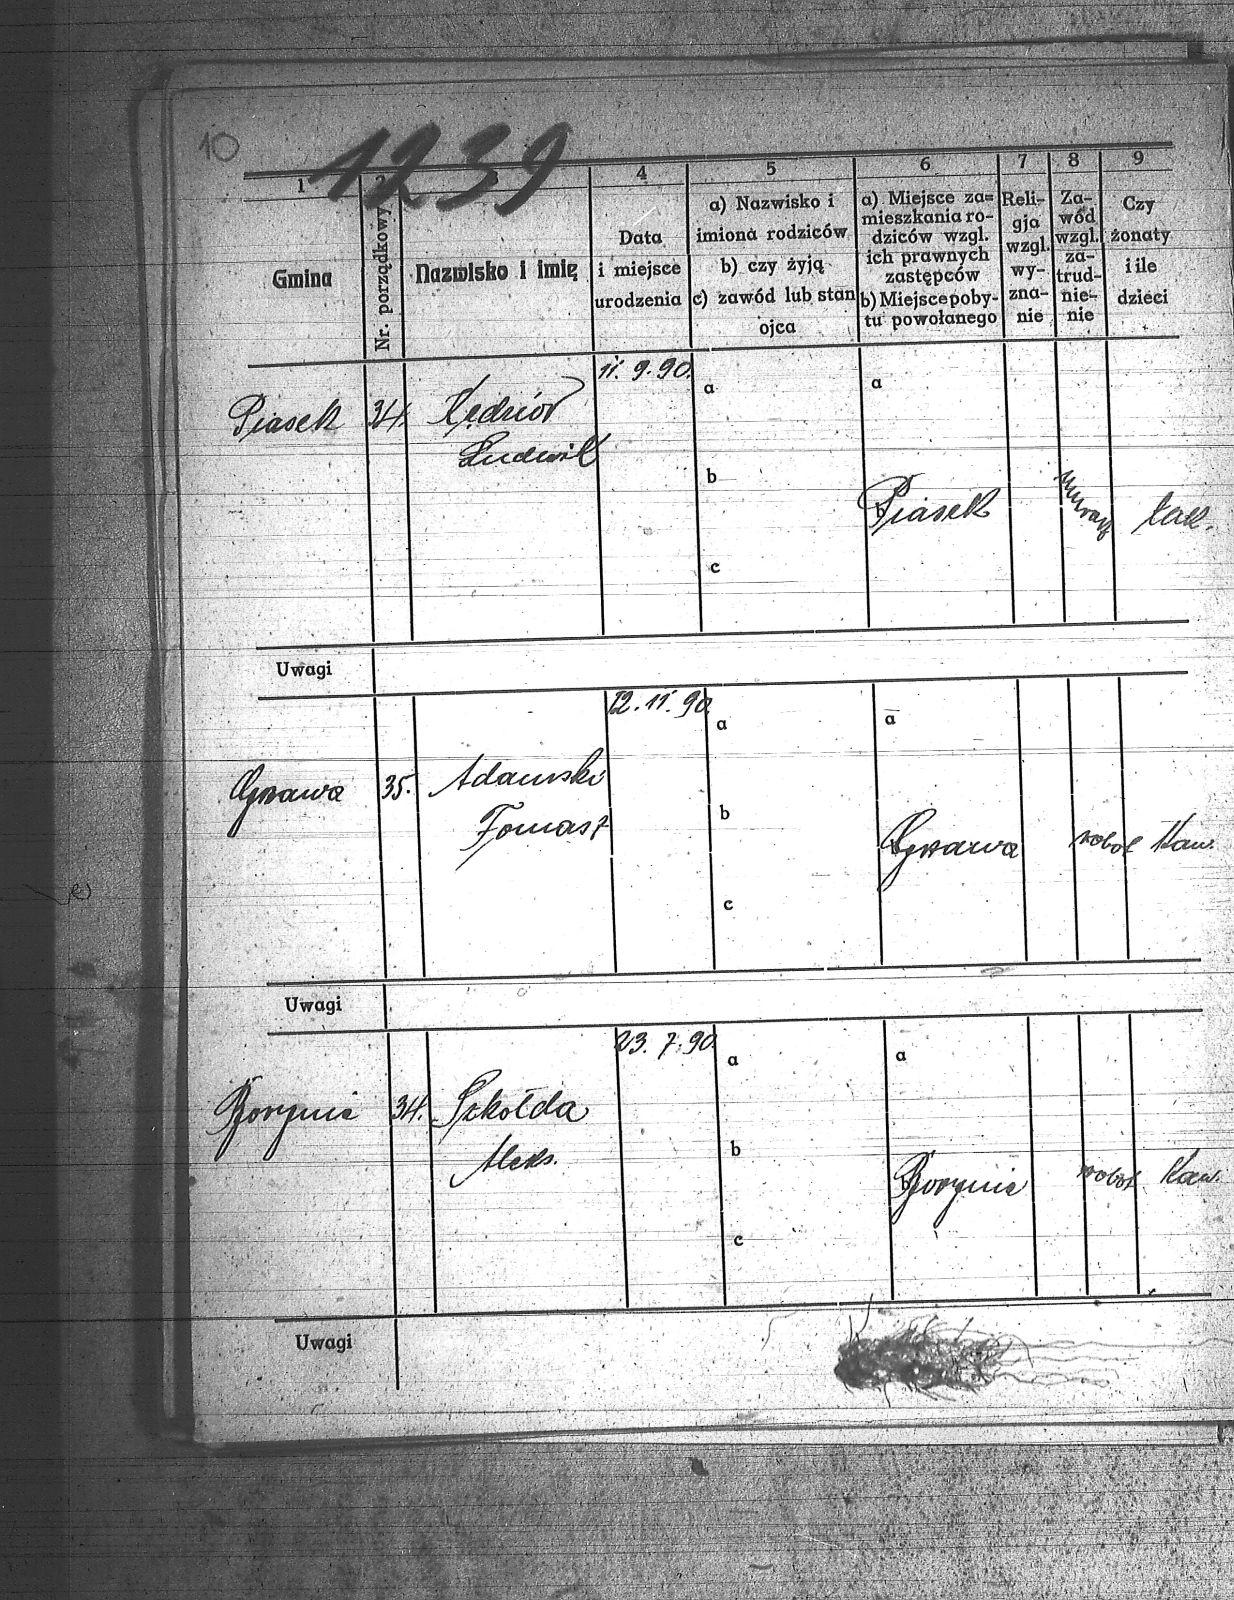 10
1239
1
2
3
4
5
6
7
8
9
Gmina
Nr. porządkowy
Nazwisko i imię
Data
i miejsce
urodzenia
a) Nazwisko i
imiona rodziców
b) czy żyją
c) zawód lub stan
ojca
a) Miejsce za=
mieszkania ro-
dziców wzgl.
ich prawnych
zastępców
b) Miejsce poby-
tu powołanego
Reli-
gja
wzgl.
wy-
zna-
nie
Za-
wód
wzgl.
za-
trud-
nie-
nie
Czy
żonaty
i ile
dzieci
Piasek 34. Kędzior
Ludwik
11. 9. 90.
a
b
c
a
b Piasek
tak.
Uwagi
35. Adamski
Tomasz
12. 11. 90.
a
b
c
a
robot Kaw.
Uwagi
Borynia 34. Szkołda
Aleks.
23. 7. 90.
a
b
c
a
Borynia
robot Kaw.
Uwagi